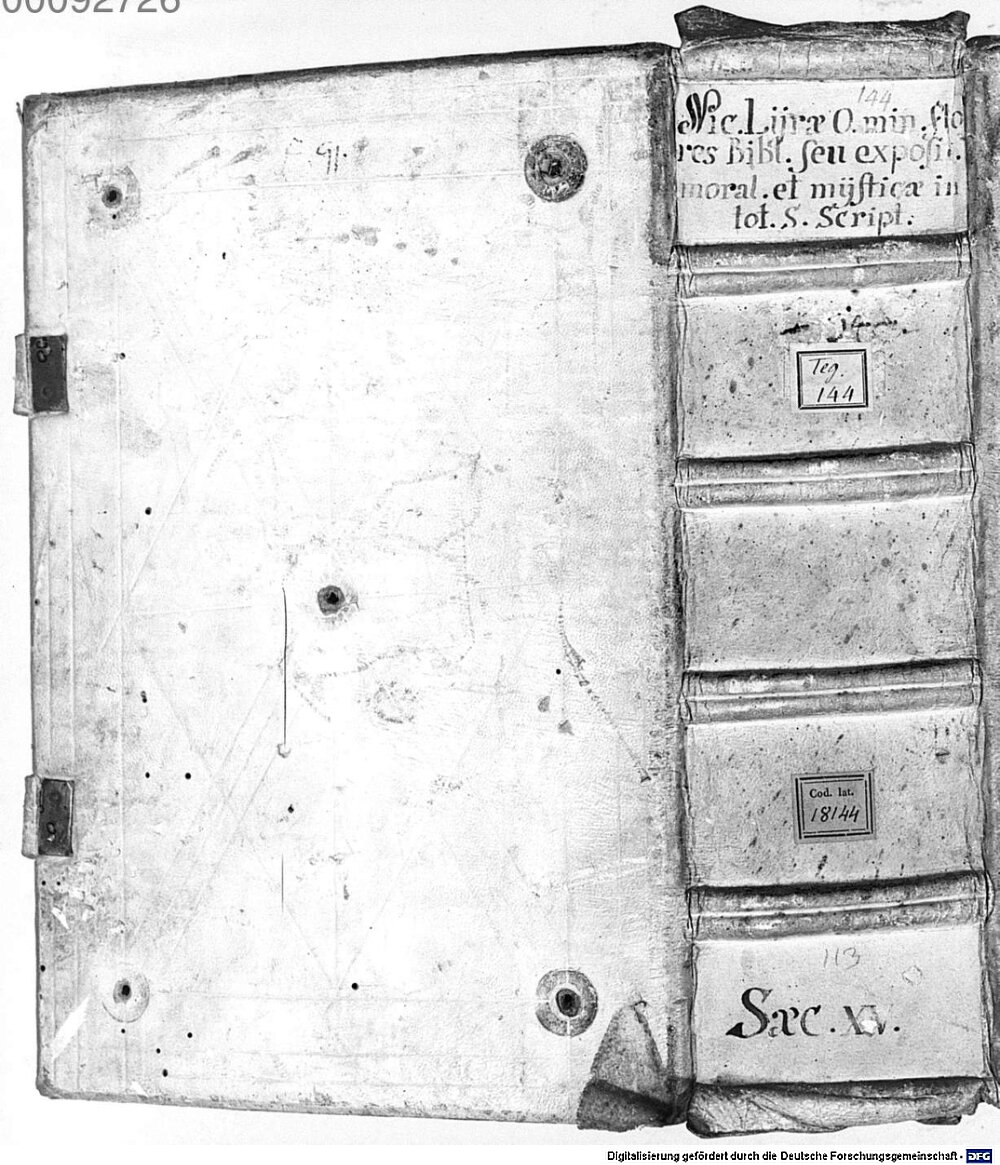 00092726
144
Nic. Lijræ O. min. flo
res Bibl. seu exposit.
moral. et mÿsticæ in
tot. S. Script.
Teg.
144
Cod. lat.
18144
113
Sæc. XV.
Digitalisierung gefördert durch die Deutsche Forschungsgemeinschaft - DFG